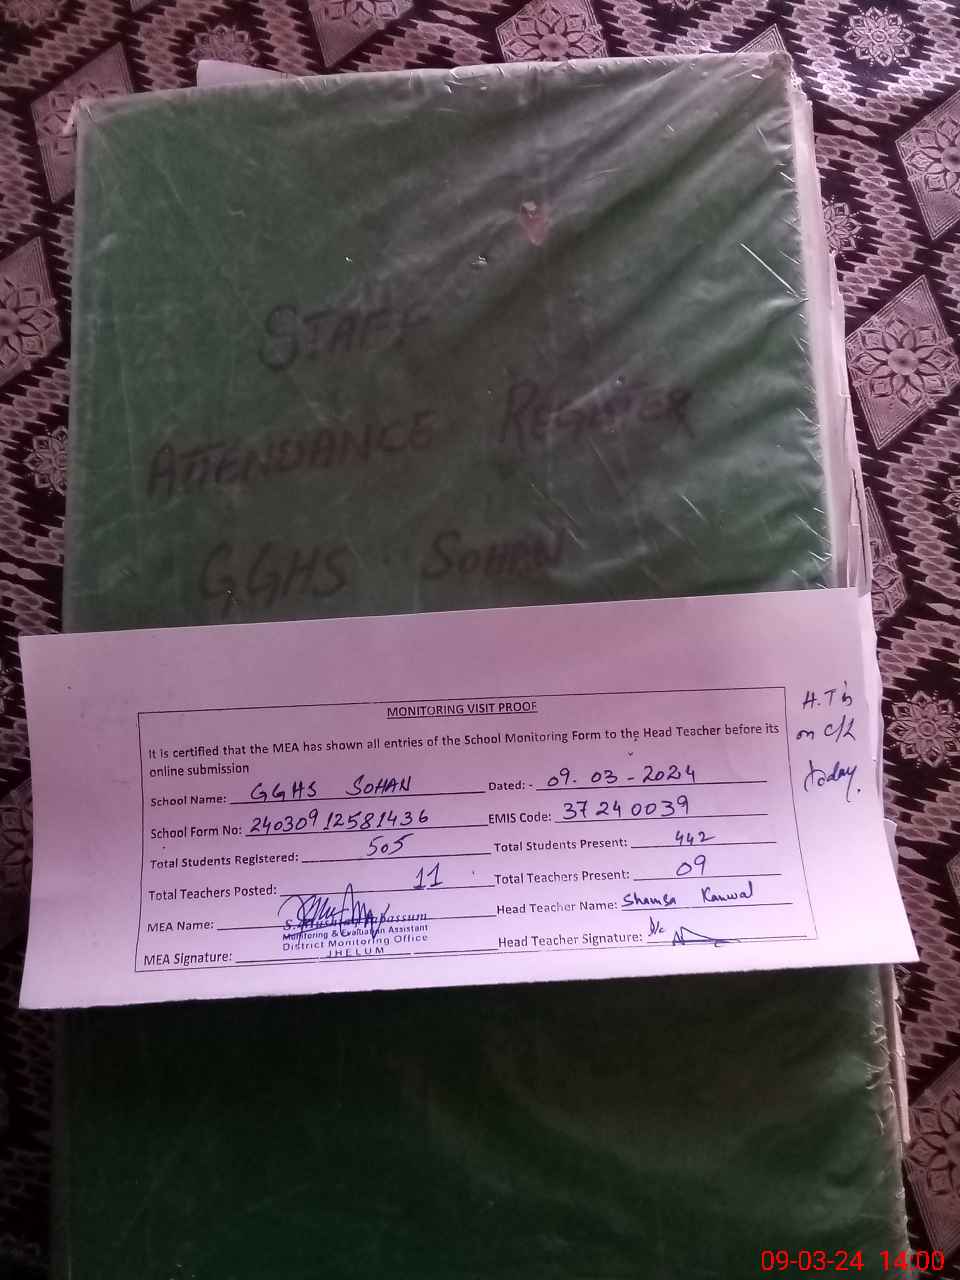 STAFF
ATTENDANCE REGISTER
GGHS SOHAN
MONITORING VISIT PROOF
It is certified that the MEA has shown all entries of the School Monitoring Form to the Head Teacher before its
online submission
School Name: GGHS SOHAN Dated: - 09.03-2024
School Form No: 24030912581436 EMIS Code: 37240039
Total Students Registered: 505 Total Students Present: 442
Total Teachers Posted: 11 Total Teachers Present: 09
MEA Name: Head Teacher Name: Shamsa Kanwal
Monitoring & Evaluation Assistant
District Monitoring Office
JHELUM
MEA Signature: Head Teacher Signature:
H.T is
on C/L
today.
09-03-24 14:00